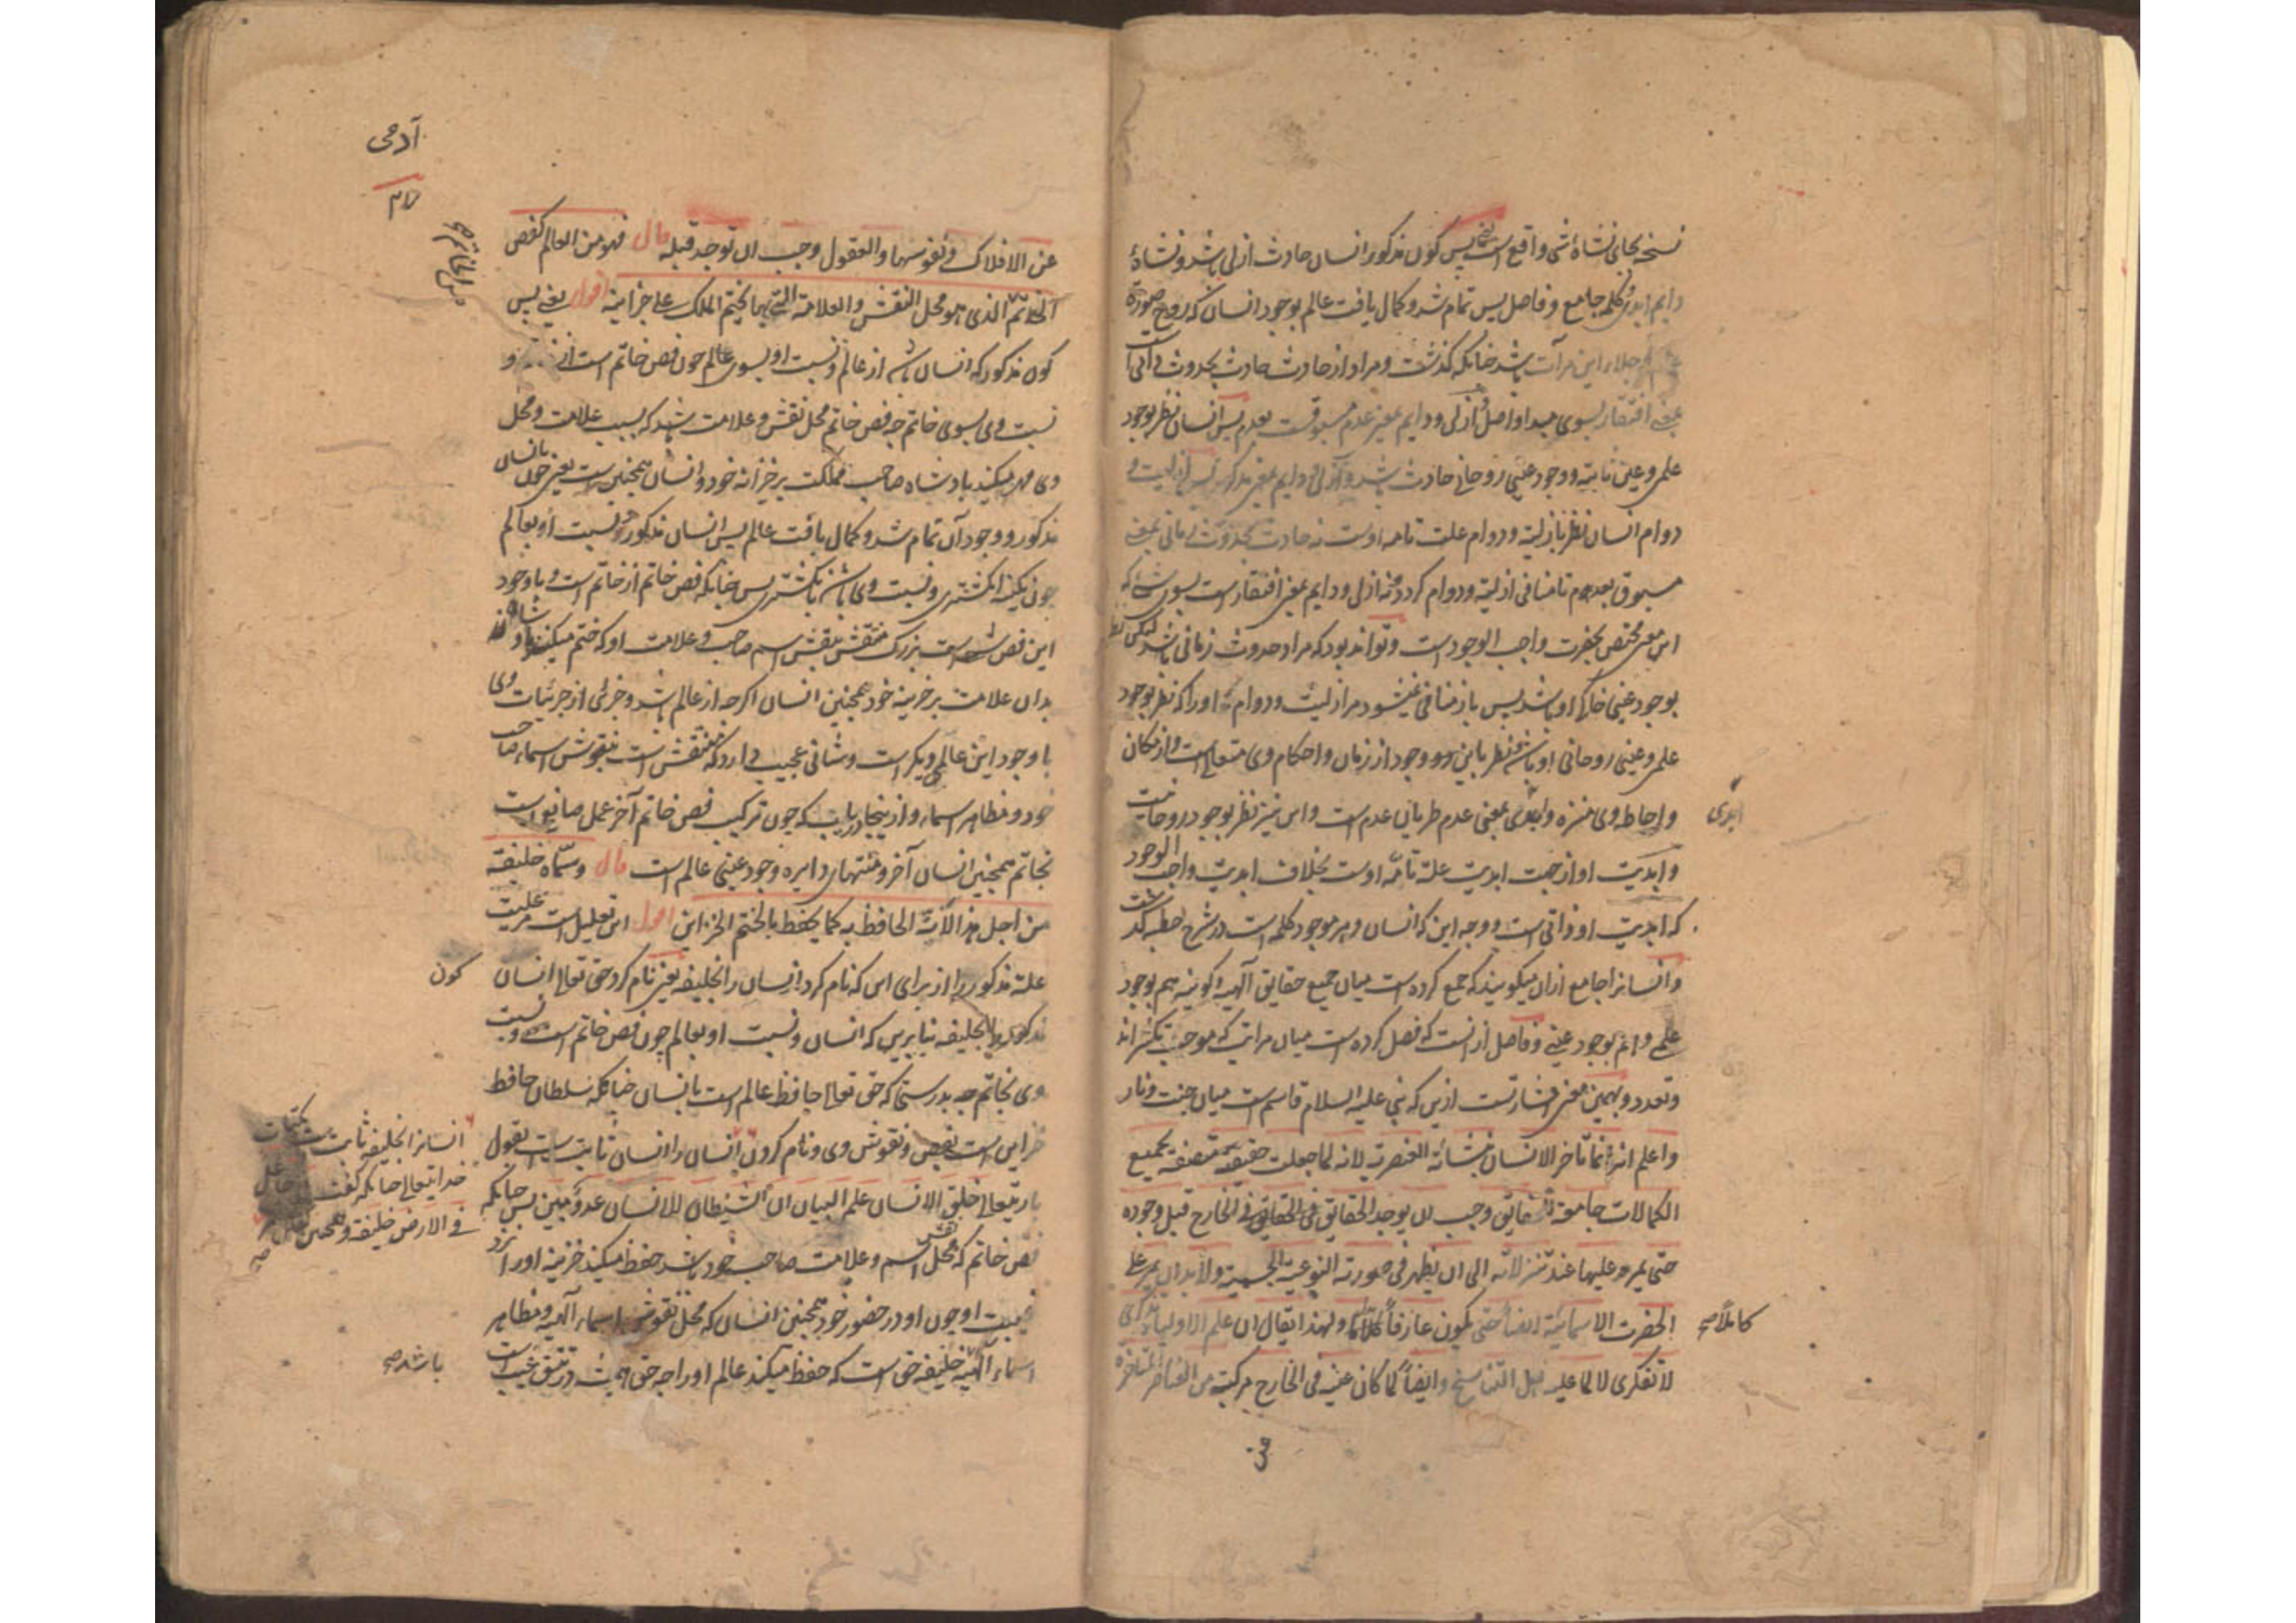 نسخه بجای نشاهٔ شی واقع است پس کون مذکور انسان حادث ازلی باشد و نشاهٔ
دایم ابدی و کلمه جامع و فاصل پس تمام شد و کمال یافت عالم بوجود انسان که روح صورة
جلاء این مرآت باشد چنانکه گذشت و مراد از حادث حادث بحدوث ذاتی است
بمعنی افتقار بسوی مبدا و اصل و ازلی و دایم بمعنی عدم مسبوقیت بعدم پس انسان نظر بوجود
علمی و عین ثابته و وجود عینی روحانی حادث باشد و ازلی و دایم بمعنی مذکور پس ازلیت و
دوام انسان نظر بازلیة و دوام علت تامه اوست نه حادث بحدوث زمانی بمعنی
مسبوق بعدم تا منافی ازلیة و دوام گردد و نه ازلی و دایم بمعنی افتقار است بسوی شی که
این معنی مختص بحضرت واجب الوجود است و تواند بود که مراد حدوث زمانی باشد لیکن نظر
بوجود عینی خارجی او باشد پس باز منافی نمیشود مر ازلیت و دوام او را که نظر بوجود
علمی و عینی روحانی او باشد نظر باین دو وجود از زمان و احکام وی متعالی است و از مکان
و احاطه وی منزه و ابدی بمعنی عدم طریان عدم است و این نیز نظر بوجود روحانیت
ابدی
و ابدیت او از جهت ابدیت علة تامّه اوست بخلاف ابدیت واجب الوجود
که ابدیت او ذاتی است و وجه این که انسان و هر موجود کلمه است در شرح خطبه گذشت
و انسانرا جامع ازان میگویند که جمع کرده است میان جمیع حقایق آلهیه و کونیه هم بوجود
علمی و هم بوجود عینی و فاصل ازانست که فصل کرده است میان مراتب که موجب تکثر اند
و تعدد و بهمین معنی اشارتست ازین که نبی علیه السلام قاسم است میان جنت و نار
و اعلم انه انما تاخر الانسان بنشائه العنصریة لانه لما جعلت حقیقته متصفة بجمیع
الکمالات جامعة للحقایق وجب ان یوجد الحقایق فی الخارج قبل وجوده
حتی یمر علیها عند تنزلاته الی ان یظهر فی صورته النوعیة الجسمیة و لابد ان یمر علی
الحضرت الاسمائیة ایضا حتی یکون عارفاً کاملاً و لهذا یقال ان علم الاولیاء تذکری
کاملاً صح
لا تفکری لا لما علیه اهل التناسخ و ایضاً لما کان عینه فی الخارج مرکبة من العناصر المتاخرة
عن
آدمی
عن الافلاک و نفوسها و العقول وجب ان توجد قبله قال فهو من العالم کفص
الخاتم الذی هو محل النقش و العلامة التی بها یختم الملک علی خزاینه اقول یعنی پس
کون مذکور که انسان باشد از عالم و نسبت او بسوی عالم چون فص خاتم است از و
نسبت وی بسوی خاتم چه فص خاتم محل نقش و علامت باشد که بسبب علامت و محل
وی مهر میکند بادشاه صاحب مملکت بر خزانه خود و انسان همچنین است یعنی چون بانسان
مذکور و وجود آن تمام شد و کمال یافت عالم پس انسان مذکور و نسبت او بعالم
چون نگینه انگشتری و نسبت وی باشد بانگشتری پس چنانکه فص خاتم از خاتم است و با وجود
این فص شانیست بزرگ منقش بنقش اسم صاحب و علامت او که ختم میکند بادشاه
بدان علامت بر خزینه خود همچنین انسان اگرچه از عالم باشد و جزئی از جزئیات وی
با وجود این عالمی دیگر است و شانی عجیب دارد که منتقش است بنقوش اسماء صاحب
خود و مظاهر اسماء و از ینجا دریاب که چون ترکیب فص خاتم آخر عمل صانع است
بخاتم همچنین انسان آخر و منتهای دایره وجود عینی عالم است قال و سمّاه خلیفة
من اجل هذا لانه الحافظ به کما یحفظ بالختم الخزاین اقول این تعلیل است مر علیت
علة مذکور را از برای این که نام کرد انسان را بخلیفه یعنی نام کرد حق تعالی انسان
کون
مذکور را بخلیفه بنا برین که انسان و نسبت او بعالم چون فص خاتم است و نسبت
وی بخاتم چه بدرستی که حق تعالی حافظ عالم است بانسان چنانکه سلطان حافظ
خزاین است بفص و نقوش وی و نام کردن انسان را انسان ثابت است بقول
انسانرا بخلیفه ثابت است
خدایتعالی چنانکه گفت
فی الارض خلیفة و همچنین
باریتعالی خلق الانسان علمه البیان ان الشیطان للانسان عدو مبین پس چنانکه
فص خاتم که محل نقش اسم و علامت صاحب خود باشد حفظ میکند خزینه او را نزد
غیبت او چون او در حضور خود همچنین انسان که محل نقوش اسماء آلهیه و مظاهر
اسماء آلهیه خلیفه حق است که حفظ میکند عالم او را چه حق همیشه در تتق غیب است
باشد صح